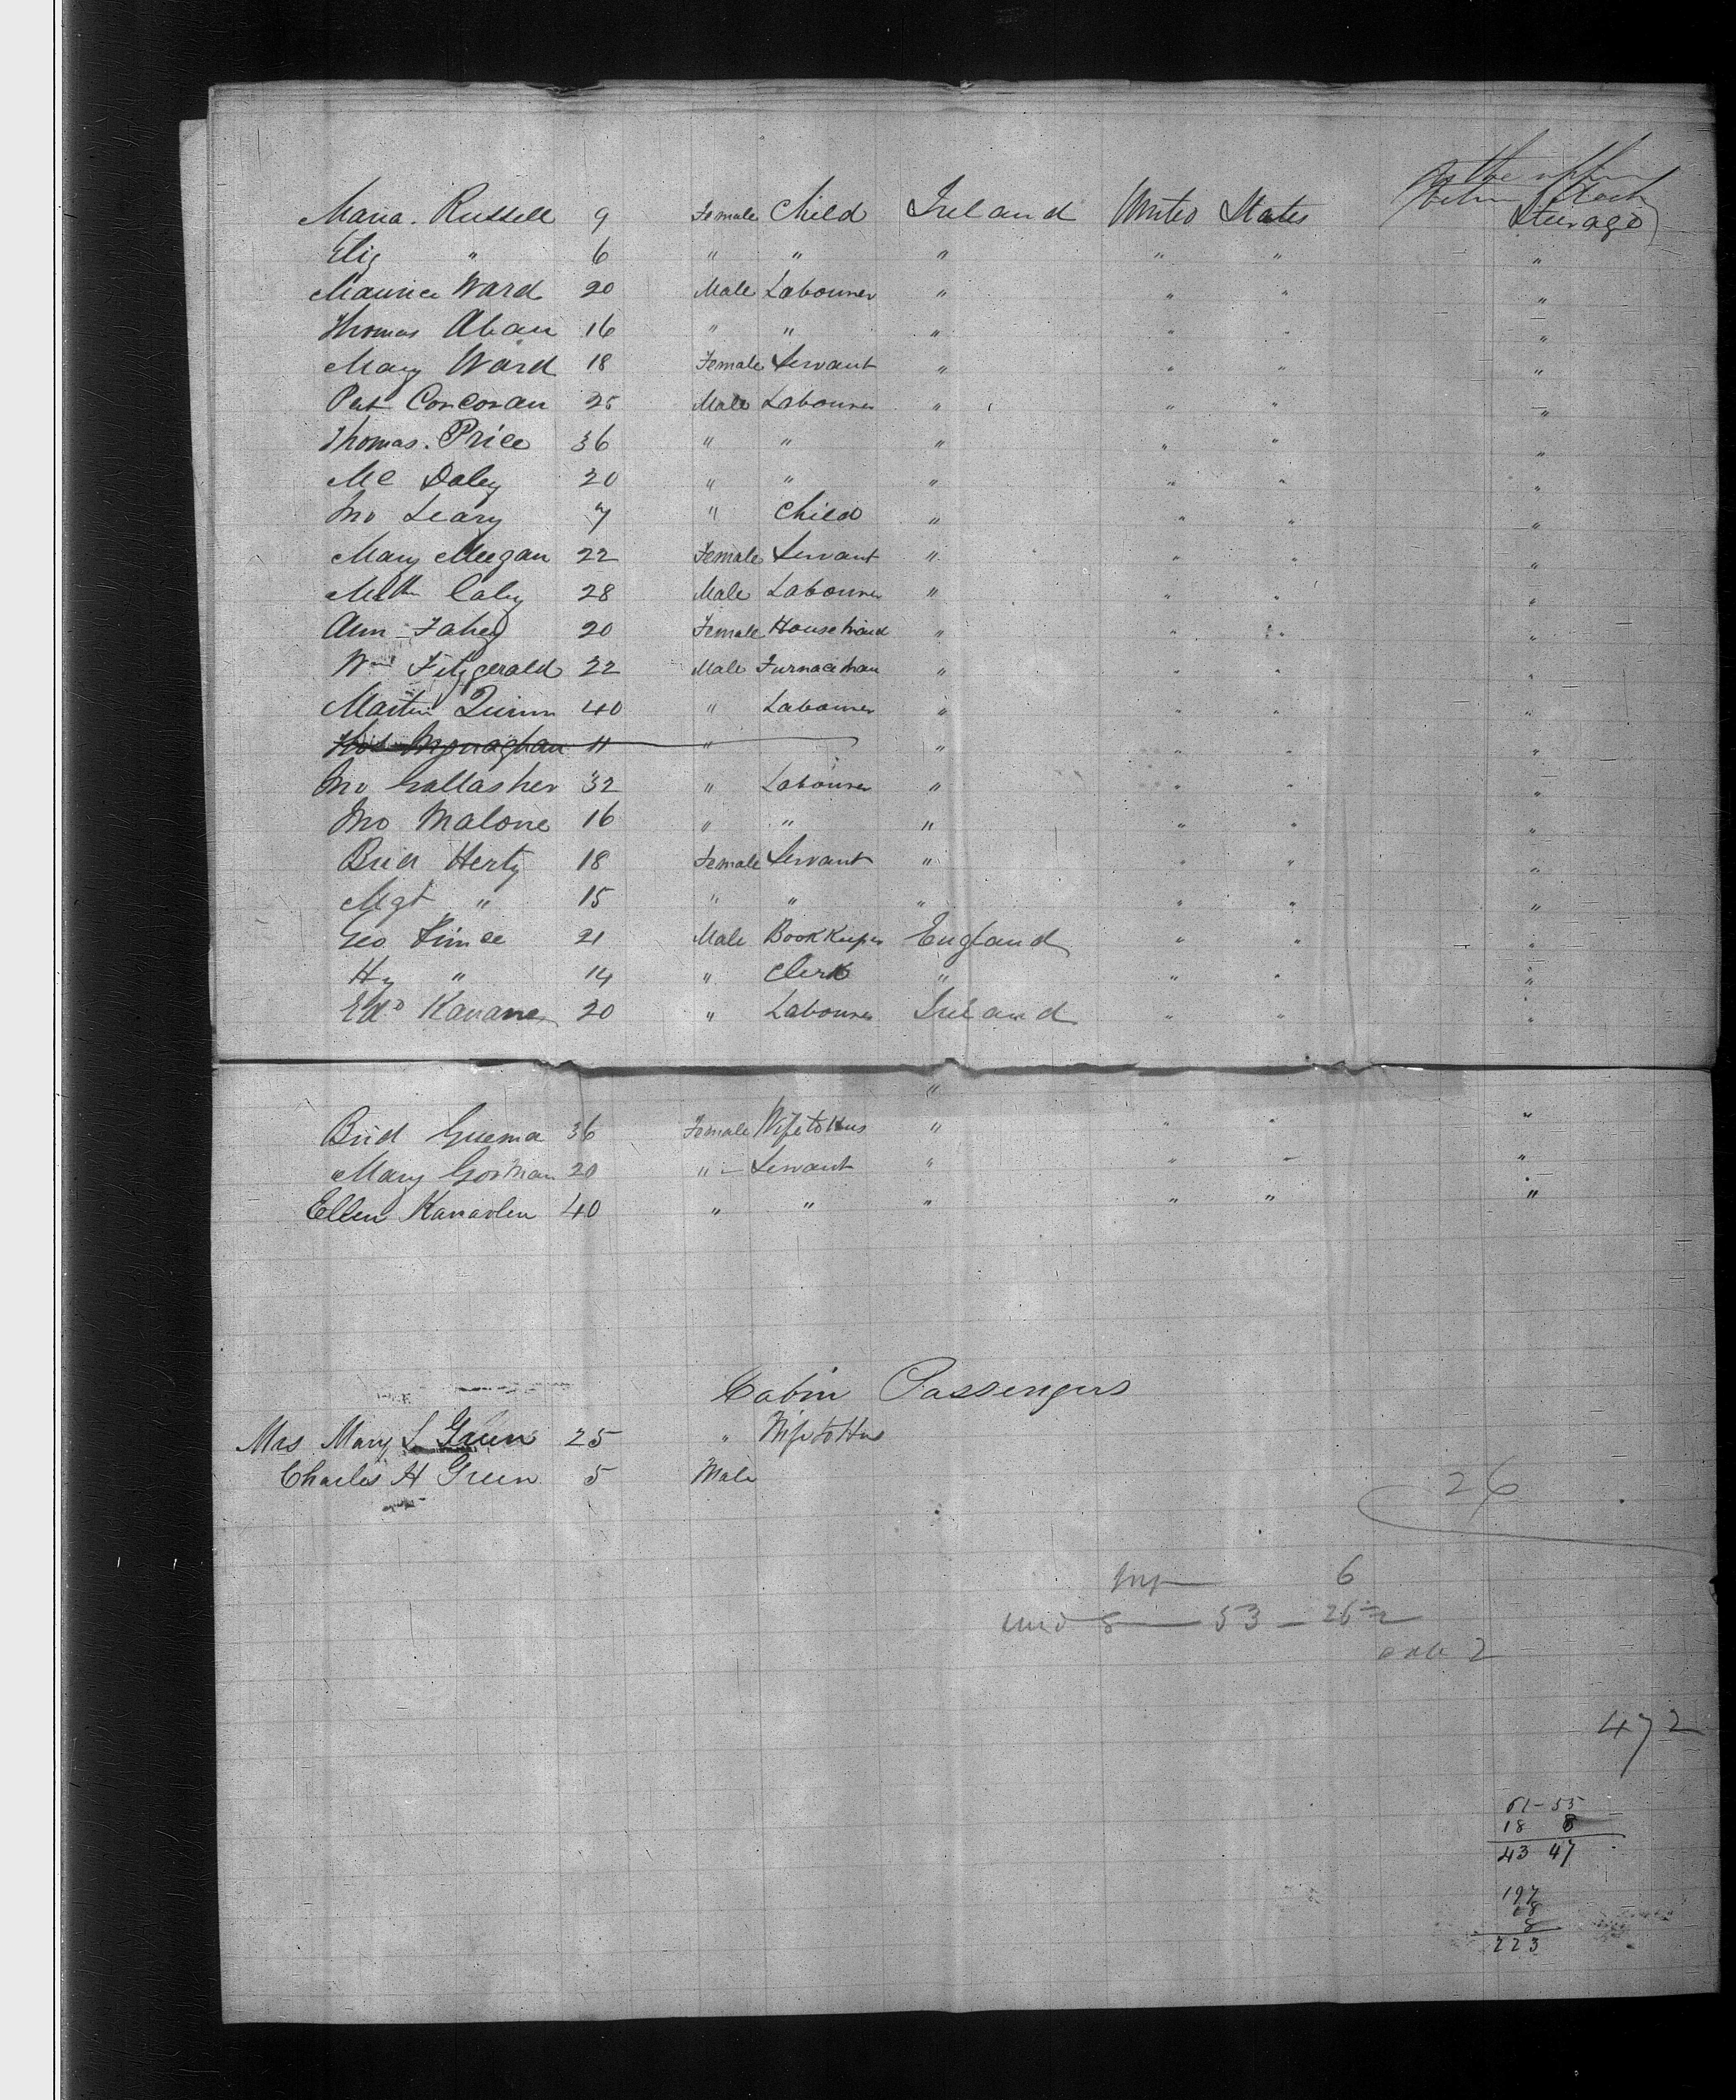 In the upper
between Deck
Maria. Russell 9 Female Child Ireland United States Steerage
Eliz " 6 " " " " " "
Maurice Ward 20 Male Labourer " " " "
Thomas Ahan 16 " " " " " "
Mary Ward 18 Female Servant " " " "
Pat Corcoran 25 Male Labourer " " " "
Thomas. Price 36 " " " " " "
Ml Daley 20 " " " " " "
Jno Leary 7 " Child " " " "
Mary Meegan 22 Female Servant " " " "
Caley 28 Male Labourer " " " "
Ann Fahey 20 Female Housemaid " " " "
Wm Fitzgerald 22 Male Furnaceman " " " "
Martin Quinn 40 " Labourer " " " "
Thos Monaghan 11 " " " " "
Jno Gallasher 32 " Labourer " " " "
Jno Malone 16 " " " " " "
Brid Herty 18 Female Servant " " " "
Mgt " 15 " " " " " "
Geo 21 Male Bookkeeper England " " "
Hy " 14 " Clerk " " " "
Edd 20 " Labourer Ireland " " "
"
Brid 36 Female Wife to Hus " " " "
Mary Gorman 20 " Servant " " " "
Ellen 40 " " " " " "
Cabin Passengers
Mrs Mary L Green 25 " Wife to Hus
Charles H Green 5 Male
26
Inf 6
und 8 53 - 26
2
472
61-55
18 8
43 47
197
18
8
223